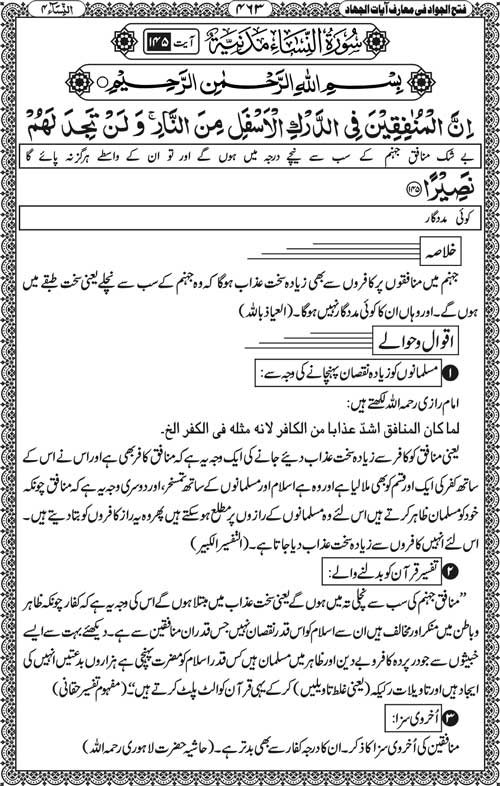 النِّسَآء ۴ ۴۶۳ فتح الجواد فی معارف آیات الجهاد
سُوْرَةُ النِّسَآءِ مَدَنِيَّةٌ آیت ۱۴۵
بِسْمِ اللهِ الرَّحْمٰنِ الرَّحِيْمِ
اِنَّ الْمُنٰفِقِيْنَ فِي الدَّرْكِ الْاَسْفَلِ مِنَ النَّارِ ۚ وَ لَنْ تَجِدَ لَهُمْ
بے شک منافق جہنم کے سب سے نیچے درجہ میں ہوں گے اور تو ان کے واسطے ہرگز نہ پائے گا
نَصِيْرًا ۱۴۵
کوئی مددگار
خلاصہ
جہنم میں منافقوں پر کافروں سے بھی زیادہ سخت عذاب ہوگا کہ وہ جہنم کے سب سے نچلے یعنی سخت طبقے میں
ہوں گے۔ اور وہاں ان کا کوئی مددگار نہیں ہوگا۔ (العیاذ باللہ)
اقوال وحوالے
۱ مسلمانوں کو زیادہ نقصان پہنچانے کی وجہ سے:
امام رازی رحمہ اللہ لکھتے ہیں:
لما کان المنافق اشدّ عذابا من الکافر لانه مثله فی الکفر الخ۔
یعنی منافق کو کافر سے زیادہ سخت عذاب دیئے جانے کی ایک وجہ یہ ہے کہ منافق کافر بھی ہے اور اس نے اس کے
ساتھ کفر کی ایک اور قسم کو بھی ملا لیا ہے اور وہ ہے اسلام اور مسلمانوں کے ساتھ تمسخر، اور دوسری وجہ یہ ہے کہ منافق چونکہ
خود کو مسلمان ظاہر کرتے ہیں اس لئے وہ مسلمانوں کے رازوں پر مطلع ہو سکتے ہیں پھر وہ یہ راز کافروں کو بتا دیتے ہیں۔
اس لئے انہیں کافروں سے زیادہ سخت عذاب دیا جاتا ہے۔ (التفسیر الکبیر)
۲ تفسیر قرآن کو بدلنے والے:
”منافق جہنم کی سب سے نچلی تہ میں ہوں گے یعنی سخت عذاب میں مبتلا ہوں گے اس کی وجہ یہ ہے کہ کفار چونکہ ظاہر
و باطن میں منکر اور مخالف ہیں ان سے اسلام کو اس قدر نقصان نہیں جس قدر ان منافقین سے ہے۔ دیکھئے بہت سے ایسے
خبیثوں سے جو در پردہ کافر و بے دین اور ظاہر میں مسلمان ہیں کس قدر اسلام کو مضرت پہنچی ہے ہزاروں بدعتیں انہیں کی
ایجاد ہیں اور تاویلات رکیکہ (یعنی غلط تاویلیں) کر کے یہی قرآن کو الٹ پلٹ کرتے ہیں“۔ (مفہوم تفسیر حقانی)
۳ اُخروی سزا:
منافقین کی اُخروی سزا کا ذکر۔ ان کا درجہ کفار سے بھی بدتر ہے۔ (حاشیہ حضرت لاہوری رحمہ اللہ)